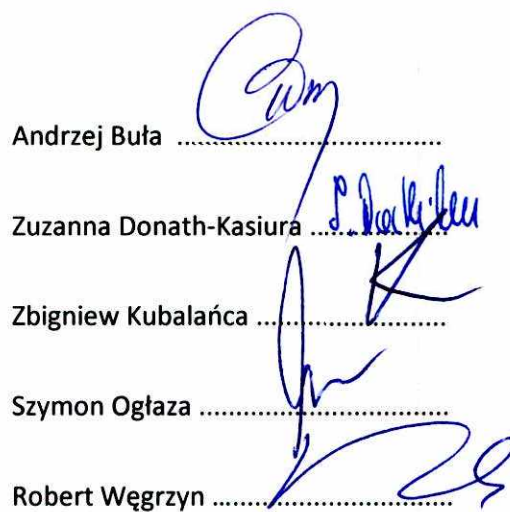 Andrzej Buła ................................
Zuzanna Donath-Kasiura ................
Zbigniew Kubalańca ......................
Szymon Ogłaza ..............................
Robert Węgrzyn ............................